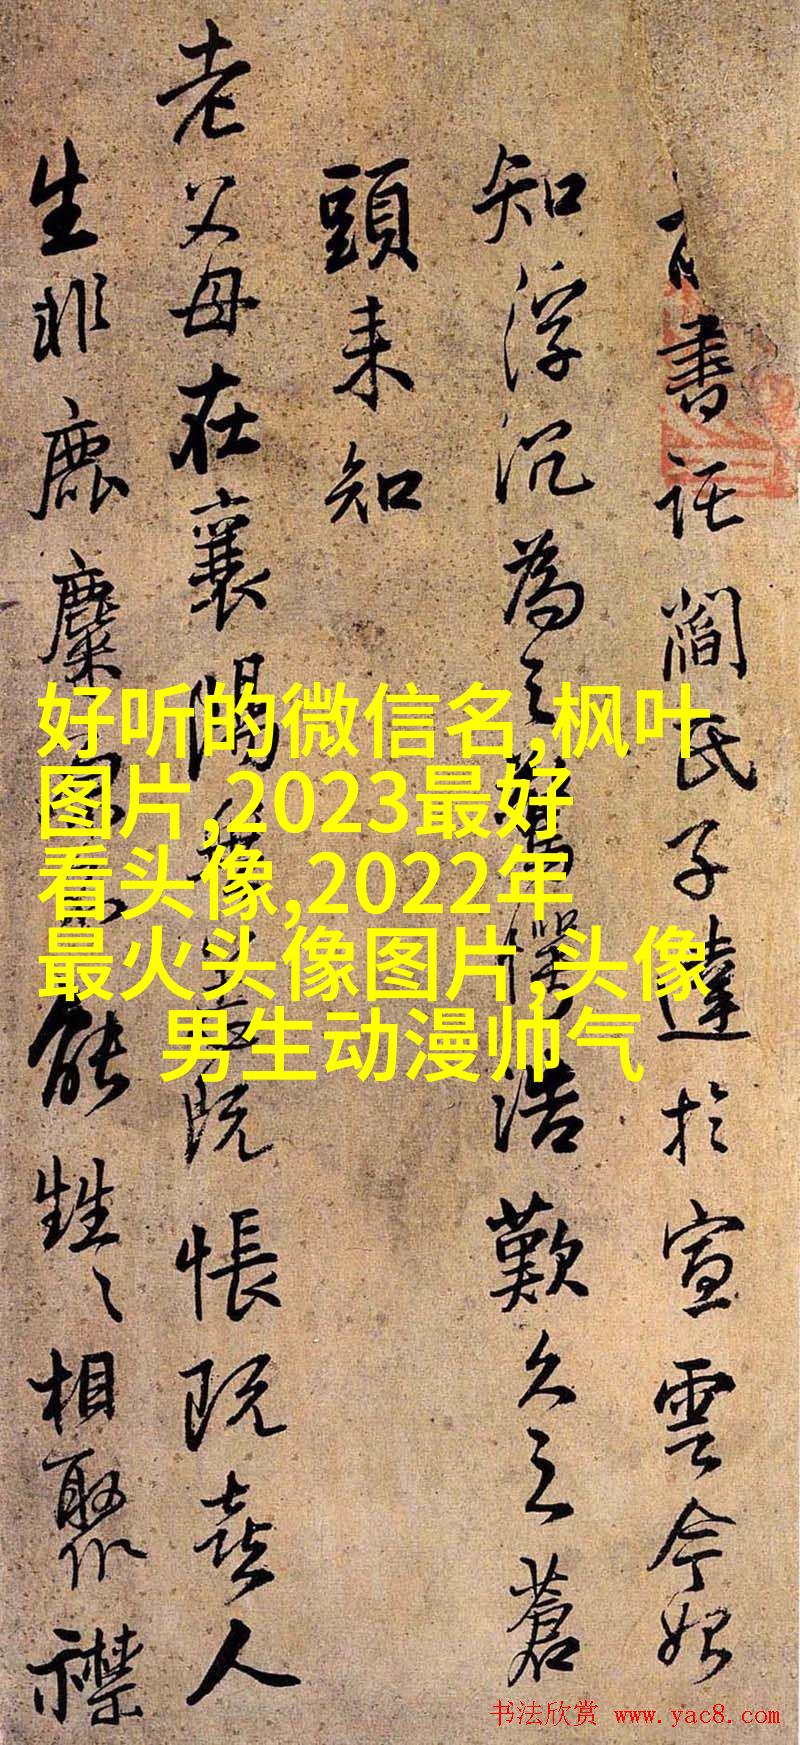 書託閻氏子達於宣雲今始
知浮沉為之驚愕浩歎久之蒼
頭来知
老父母在襄陽既悵既喜人
生非鹿麋能甡〻相聚
好听的微信名,枫叶
图片,2023最好
看头像,2022年
最火头像图片,头像
男生动漫帅气
书法欣赏 www.yac8.com